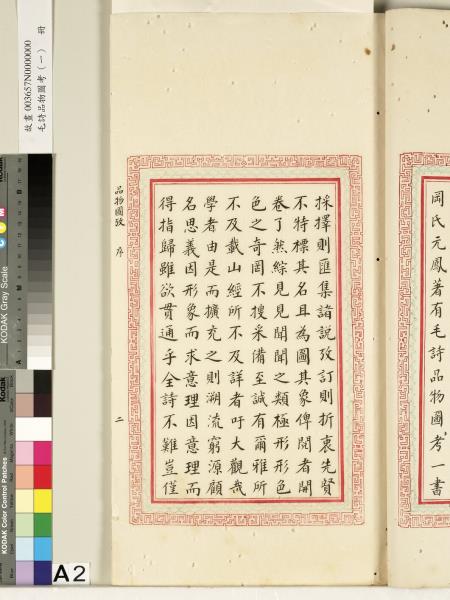 岡氏元鳳著有毛詩品物圖考一書
採擇則匯集諸說攷訂則折衷先賢
不特標其名且為圖其象俾閱者開
卷了然綜見見聞聞之類極形形色
色之奇罔不搜采備至誠有爾雅所
不及載山經所不及詳者吁大觀哉
學者由是而擴充之則溯流窮源顧
名思義因形象而求意理因意理而
得指歸雖欲貫通乎全詩不難豈僅
品物圖攷 序 二
故畫003657N0000000 冊
毛詩品物圖考(一)
KODAK Gray Scale
Kodak
KODAK Color Control Patches
A2